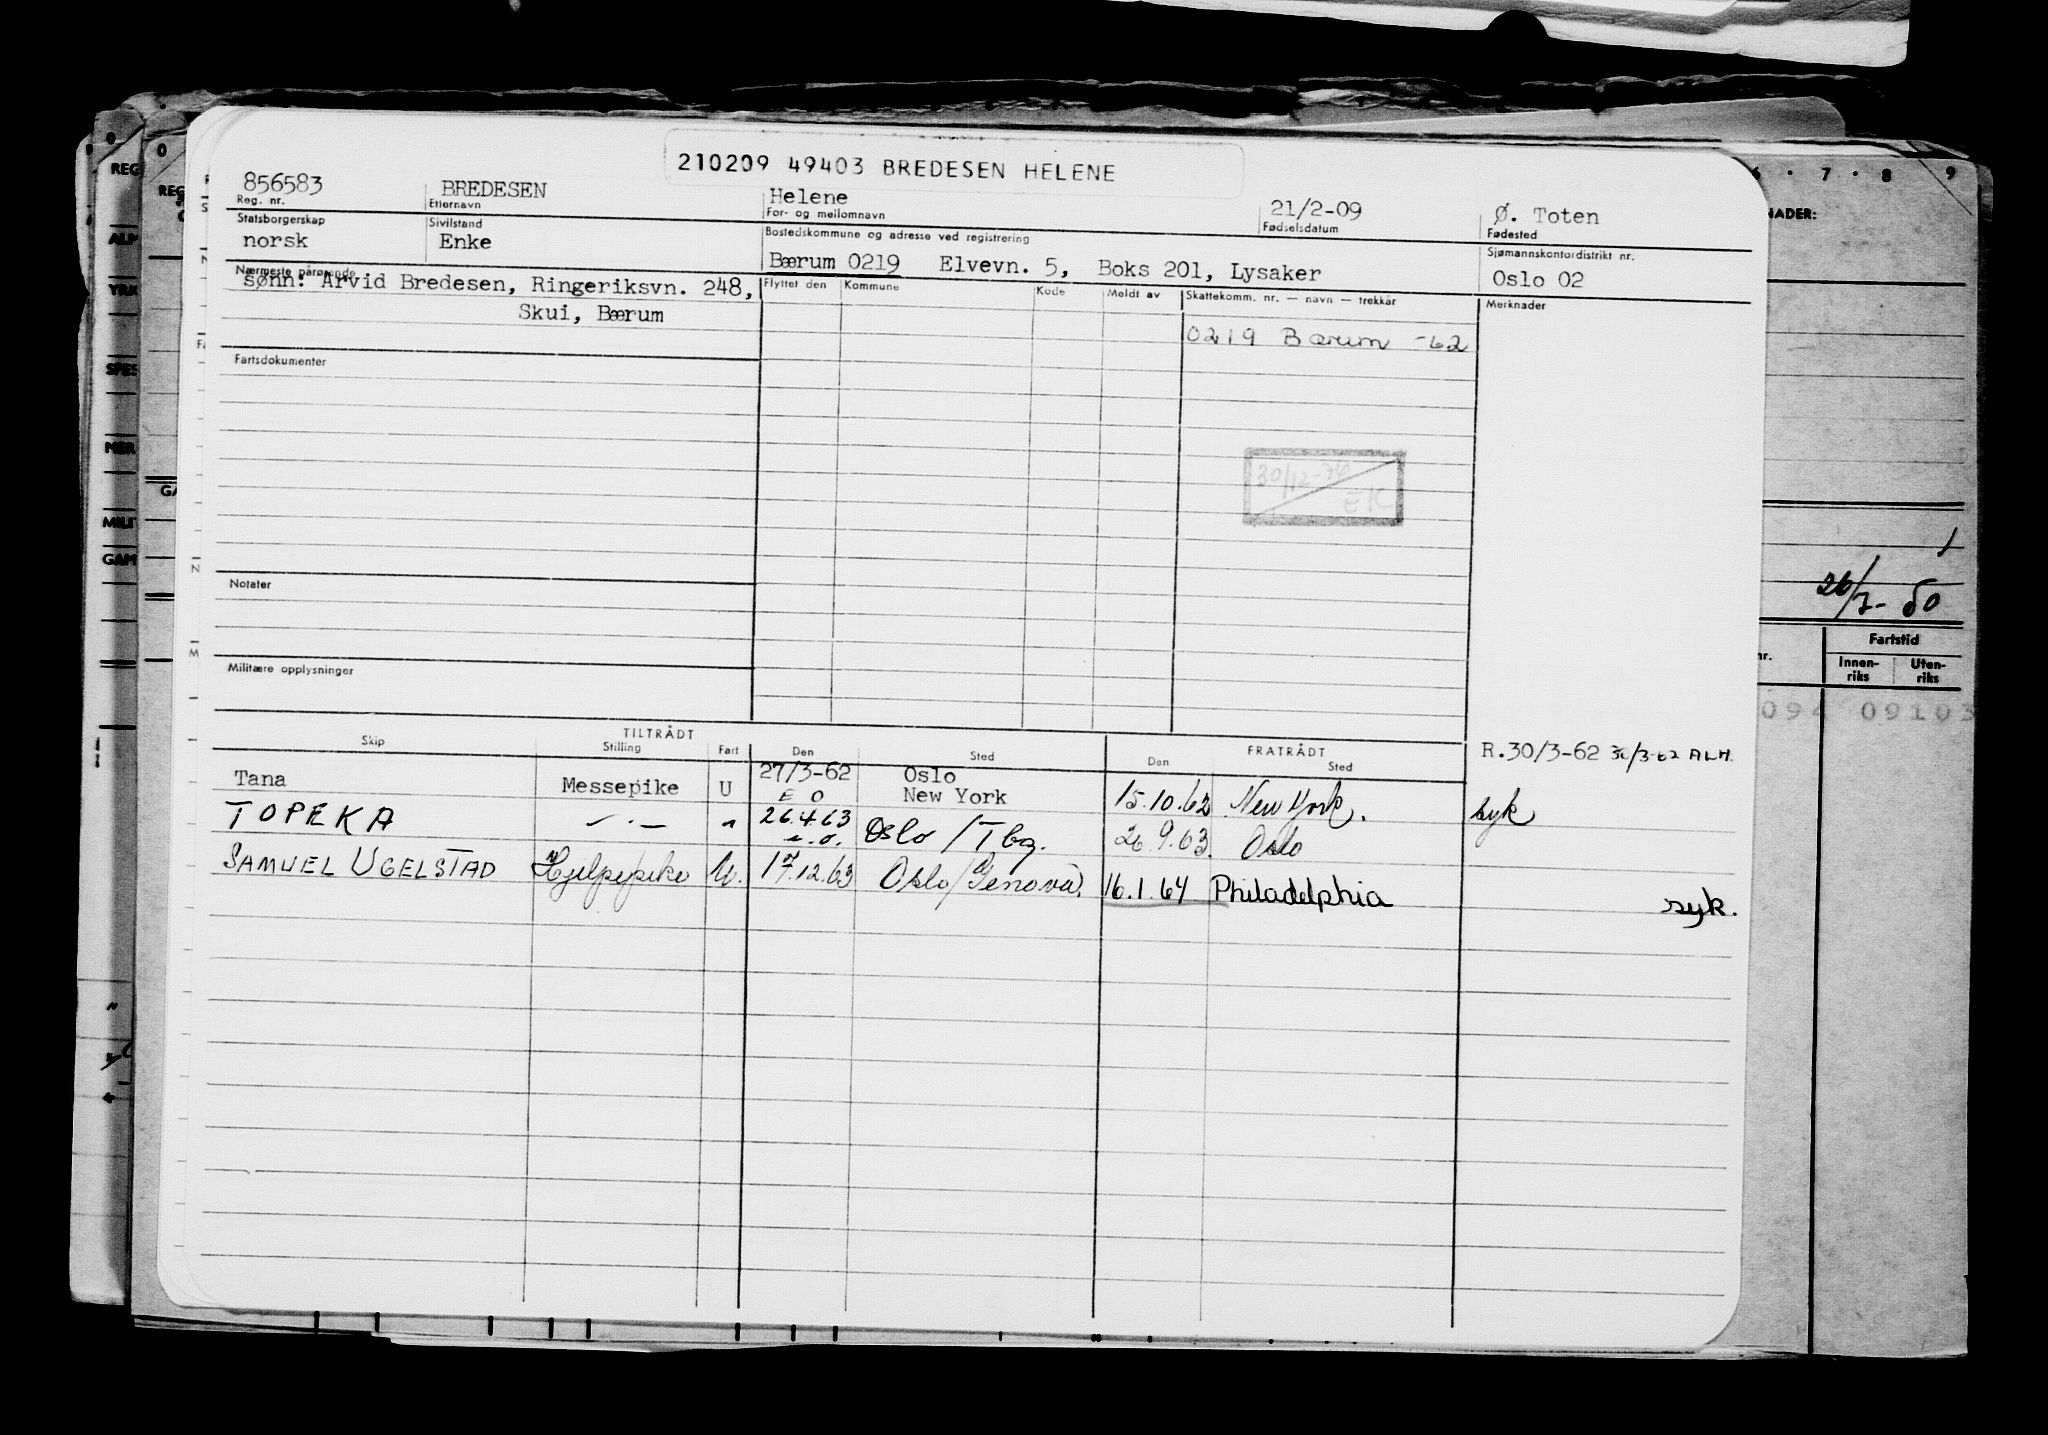 210209 49403 BREDESEN HELENE
856583 BREDESEN Helene 21/2-09 Ø. Toten
Reg. nr. Etternavn For- og mellomnavn Fødselsdatum Fødested
Statsborgerskap Sivilstand Bostedskommune og adresse ved registrering Sjømannskontordistrikt nr.
norsk Enke Bærum 0219 Elvevn. 5, Boks 201, Lysaker Oslo 02
Nærmeste pårørende Flyttet den Kommune Kode Meldt av Skattekomm. nr. — navn — trekkår Merknader
sønn: Arvid Bredesen, Ringeriksvn. 248,
Skui, Bærum
0219 Bærum -62
Fartsdokumenter
30/12-76
EK
Notater
Militære opplysninger
TILTRÅDT FRATRÅDT
Skip Stilling Fart Den Sted Den Sted
R.30/3-62 30/3-62 ALM.
Tana Messepike U 27/3-62 Oslo
E O New York 15.10.62 New York. syk
TOPEKA — · — " 26.4.63 Oslo / Tbg. 26.9.63. Oslo
e.o.
SAMUEL UGELSTAD Hjelpepike U. 17.12.63 Oslo/Genova. 16.1.64 Philadelphia syk.
REG
REG
ALM
YRK
SPES
MER
MILIT
GAM
NADER:
7 · 8 9
26/7-50
Fartstid
nr. Innen-riks Uten-riks
094 09103